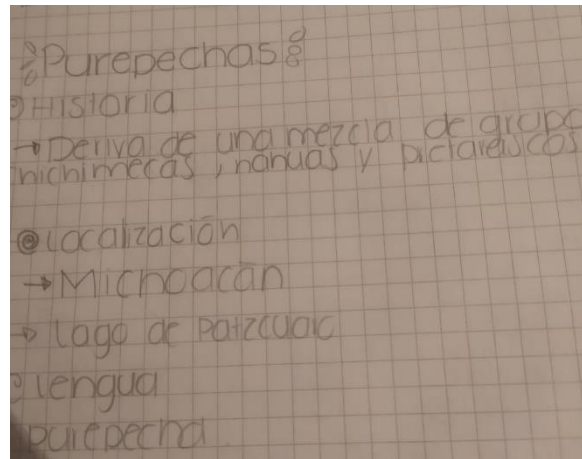 Purepechas
Historia
→ Deriva de una mezcla de grupo
hichimecas, nahuas y
Localización
→ Michoacán
→ lago de Patzcuac
lengua
purepecha